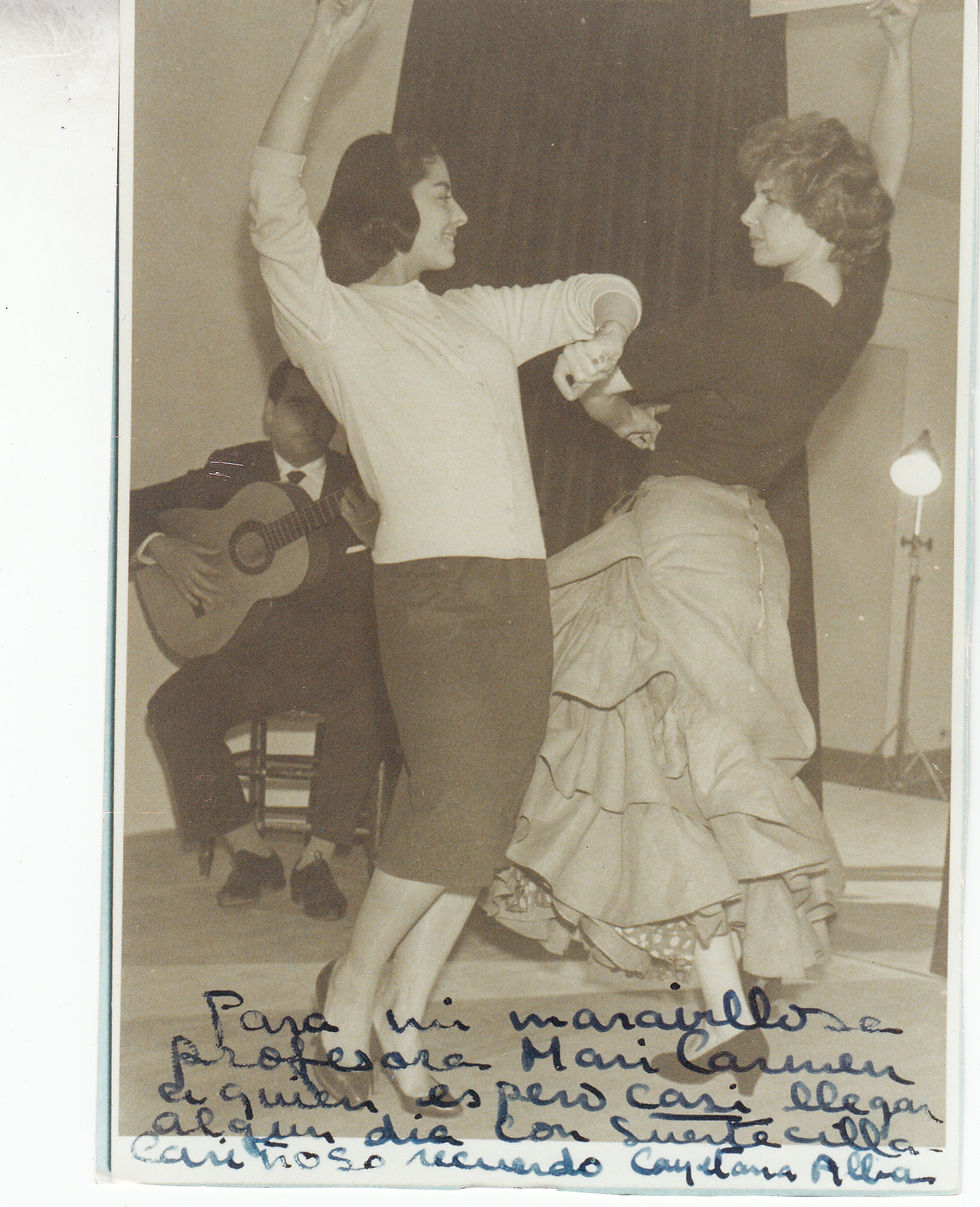 Para mi maravillosa
profesora Mari Carmen
a quien espero casi llegar
algun dia con suertecilla.
Cariñoso recuerdo Cayetana Alba